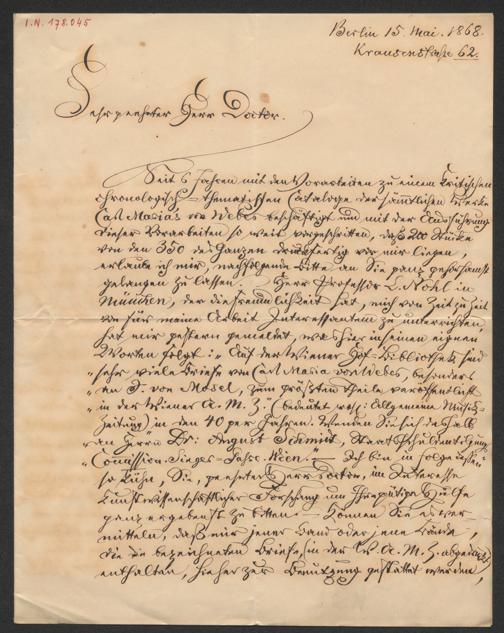 I.N. 178.045
Berlin 15. Mai. 1868.
Krausenstraße 62.
Sehr geehrter Herr Doctor.
Seit 6 Jahren mit den Vorarbeiten zu einem kritischen
chronologisch-thematischen Cataloge der sämtlichen Werke
Carl Maria's von Weber beschäftigt und mit der Ausführung
dieser Vorarbeiten so weit vorgeschritten, daß 200 Stücke
von den 350 des Ganzen druckfertig vor mir liegen,
erlaube ich mir, nachfolgende Bitte an Sie ganz gehorsamst
gelangen zu lassen. Herr Professor L. Nohl in
München, der die Freundlichkeit hat, mich von Zeit zu Zeit
von für meine Arbeit Interessantem zu unterrichten,
hat mir gestern gemeldet, was hier in seinen eignen
Worten folgt: „Auf der Wiener Hof-Bibliothek sind
„sehr viele Briefe von Carl Maria von Weber, besonders
„an J. von Mosel, zum größten Theile veröffentlicht
„in der Wiener A. M. Z." (bedeutet wohl: Allgemeine Musik-
Zeitung) in den 40ger Jahren. Wenden Sie sich deshalb
„an Herrn Dr: August Schmidt, Staatsschuldentilgungs-
„Comission. Singer-Straße. Wien." — Ich bin in Folge dessen
so kühn, Sie, geehrtester Herr Doctor, im Interesse
kunstwissenschaftlicher Forschung um Ihre gütige Hülfe
ganz ergebenst zu bitten. — Können Sie es ver-
mitteln, daß mir jener Band oder jene Bände,
die die bezeichneten Briefe, in der W. A. M. Z. abgedruckt,
enthalten, hieher zur Benutzung gestattet werden,